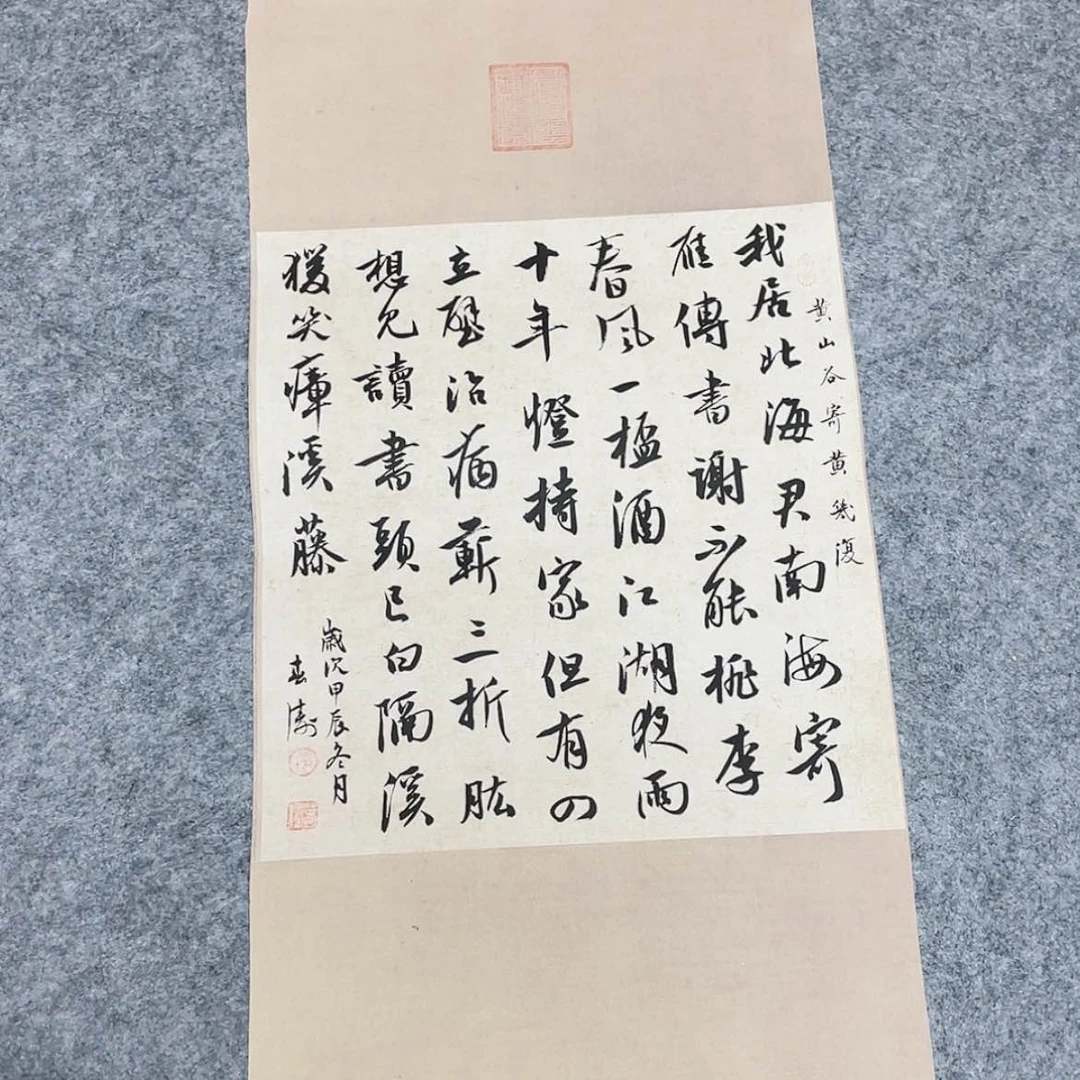 黄山谷寄黄幾復
我居北海君南海寄
雁傳書謝不能桃李
春風一杯酒江湖夜雨
十年燈持家但有四
立壁治病蘄三折肱
想見讀書頭已白隔溪
猨哭瘴溪藤
歲次甲辰冬月
春濤